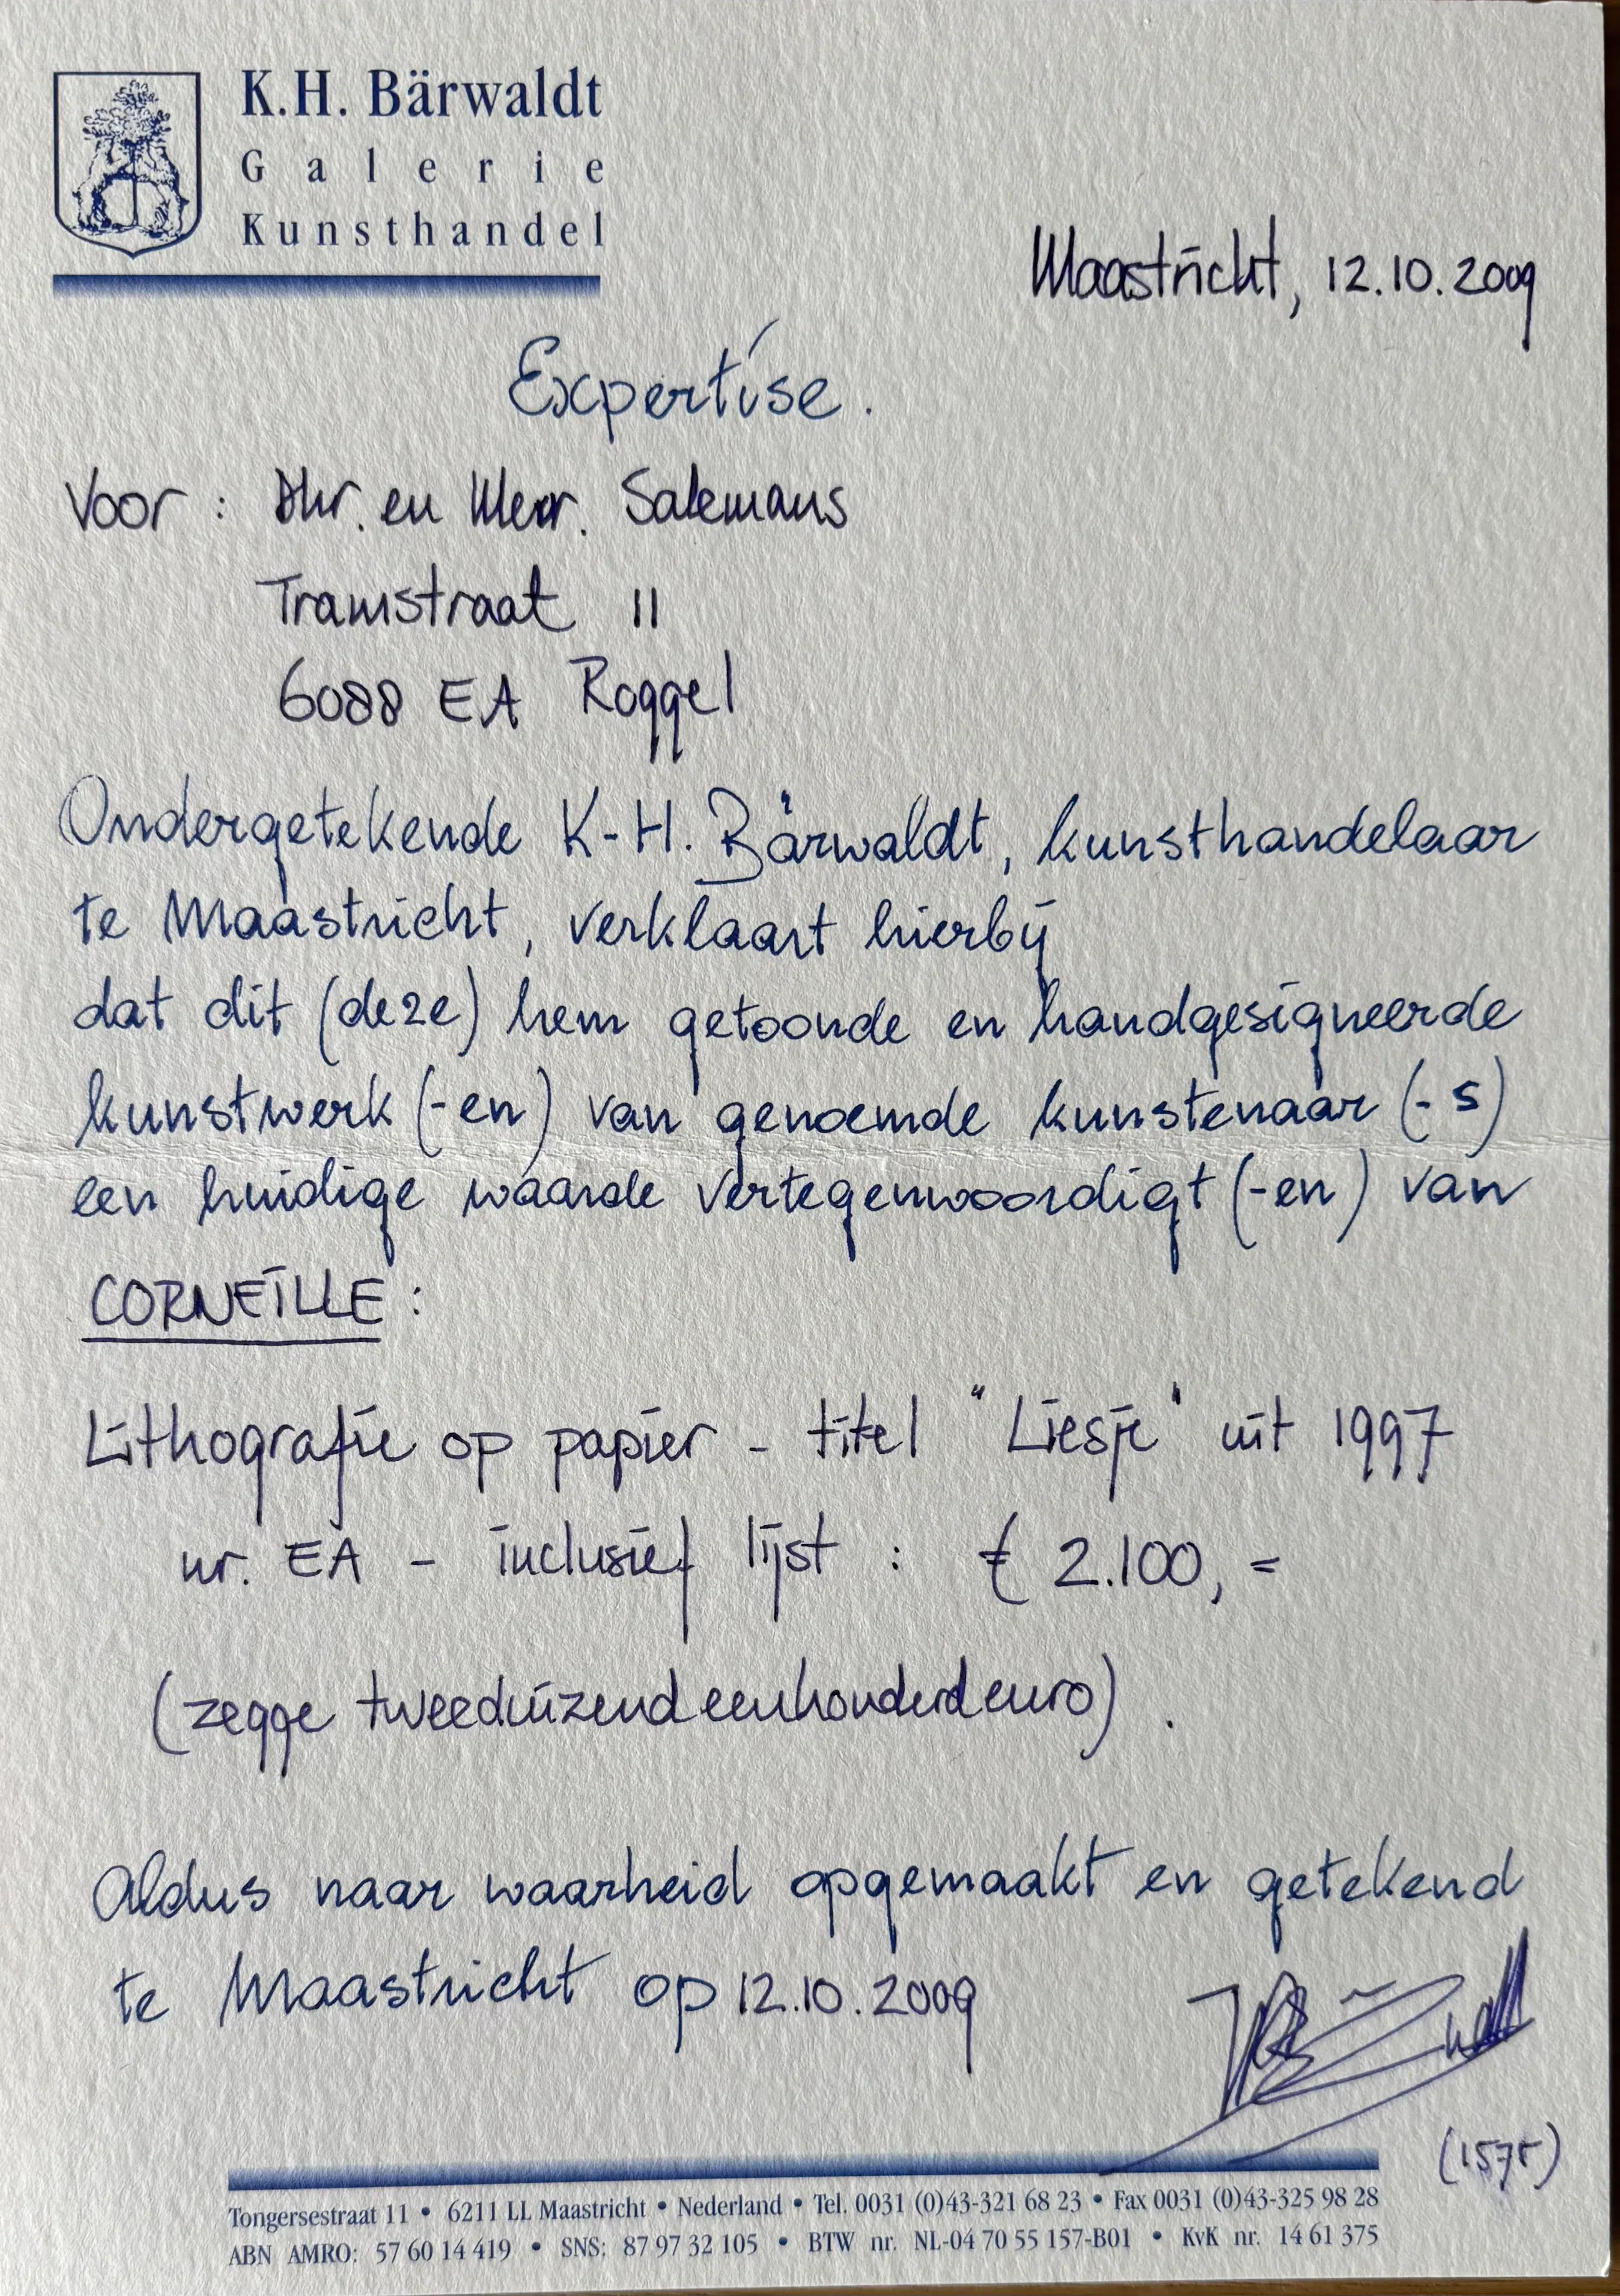 K.H. Bärwaldt
Galerie
Kunsthandel
Maastricht, 12.10.2009
Expertise.
Voor : Dhr. en Mevr. Salemans
Tramstraat 11
6088 EA Roggel
Ondergetekende K-H. Bärwaldt, kunsthandelaar
te Maastricht, verklaart hierbij
dat dit (deze) hem getoonde en handgesigneerde
kunstwerk (-en) van genoemde kunstenaar (-s)
een huidige waarde vertegenwoordigt (-en) van
CORNEILLE :
Lithografie op papier - titel "Liesje" uit 1997
nr. EA - inclusief lijst : € 2.100,=
(zegge tweeduizendeenhonderd euro).
Aldus naar waarheid opgemaakt en getekend
te Maastricht op 12.10.2009
(1575)
Tongersestraat 11 • 6211 LL Maastricht • Nederland • Tel. 0031 (0)43-321 68 23 • Fax 0031 (0)43-325 98 28
ABN AMRO: 57 60 14 419 • SNS: 87 97 32 105 • BTW nr. NL-04 70 55 157-B01 • KvK nr. 14 61 375